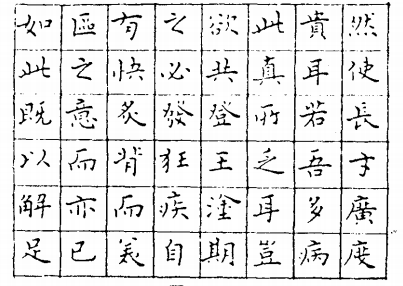 然使長才廣度
貴耳若吾多病
此真所乏耳豈
欲共登王塗期
之必發狂疾自
有快炙背而美
區之意而亦已
如此既以解足